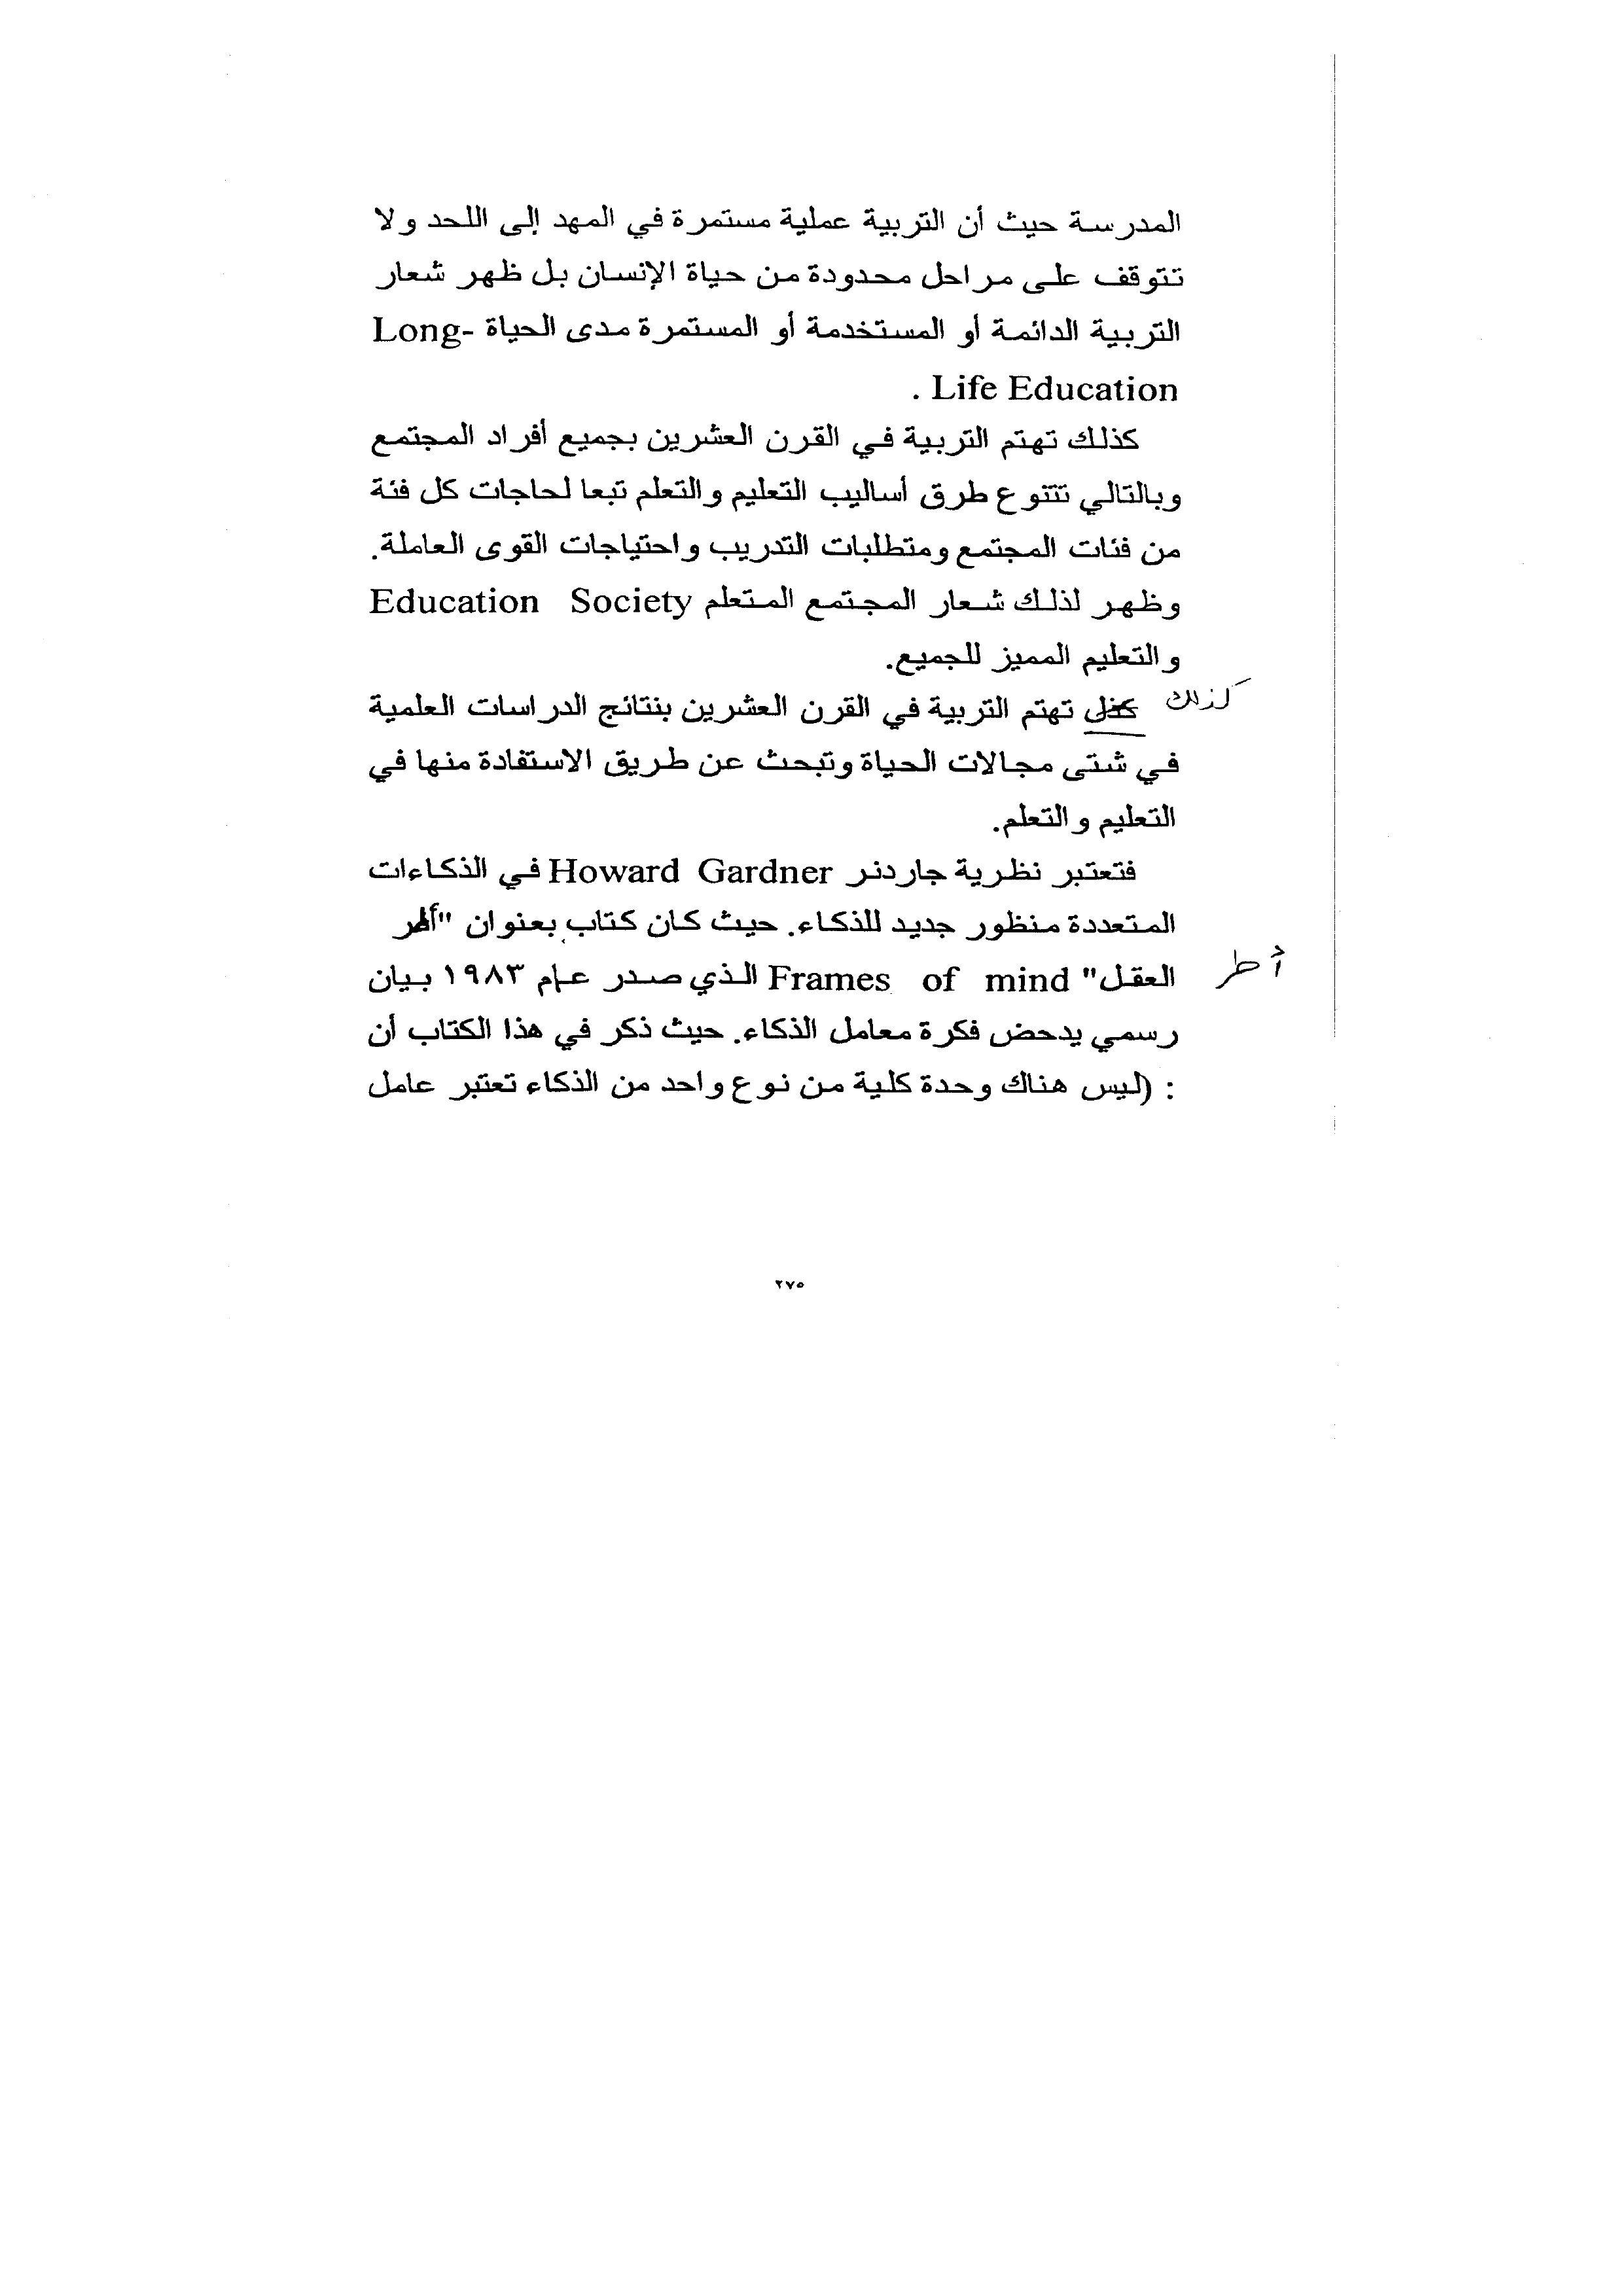 المدرسة حيث أن التربية عملية مستمرة في المهد إلى اللحد ولا
تتوقف على مراحل محدودة من حياة الإنسان بل ظهر شعار
التربية الدائمة أو المستخدمة أو المستمرة مدى الحياة Long-
Life Education .
كذلك تهتم التربية في القرن العشرين بجميع أفراد المجتمع
وبالتالي تتنوع طرق أساليب التعليم والتعلم تبعا لحاجات كل فئة
من فئات المجتمع ومتطلبات التدريب واحتياجات القوى العاملة.
وظهر لذلك شعار المجتمع المتعلم Education Society
والتعليم المميز للجميع.
كذلك
تهتم التربية في القرن العشرين بنتائج الدراسات العلمية
في شتى مجالات الحياة وتبحث عن طريق الاستفادة منها في
التعليم والتعلم.
فتعتبر نظرية جاردنر Howard Gardner في الذكاءات
المتعددة منظور جديد للذكاء. حيث كان كتاب بعنوان "
أطر
العقل" Frames of mind الذي صدر عام ١٩٨٣ بيان
رسمي يدحض فكرة معامل الذكاء. حيث ذكر في هذا الكتاب أن
: (ليس هناك وحدة كلية من نوع واحد من الذكاء تعتبر عامل
٢٧٥